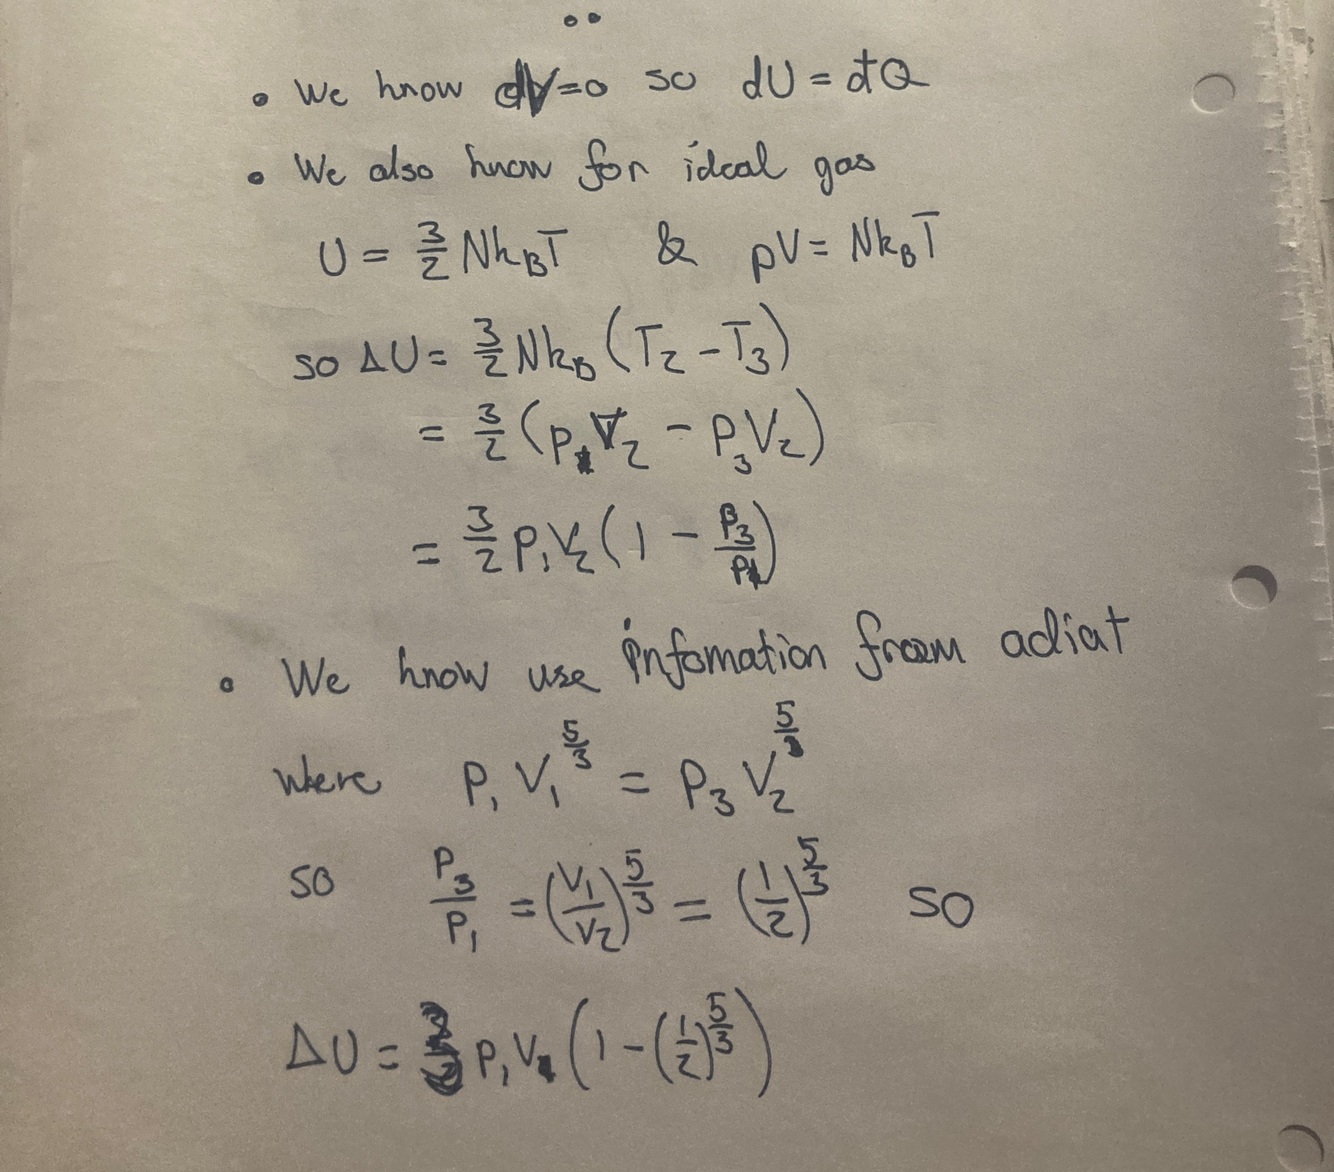 • We know dV=0 so dU = đQ
• We also know for ideal gas
U = 3/2 Nk_BT & pV = Nk_BT
so ΔU = 3/2 Nk_B (T_2 - T_3)
= 3/2 (p_1 V_2 - P_3 V_2)
= 3/2 P_1 V_2 (1 - P_3/P_1)
• We know use infomation from adiat
where P_1 V_1^(5/3) = P_3 V_2^(5/3)
so P_3/P_1 = (V_1/V_2)^(5/3) = (1/2)^(5/3) so
ΔU = P_1 V (1 - (1/2)^(5/3))